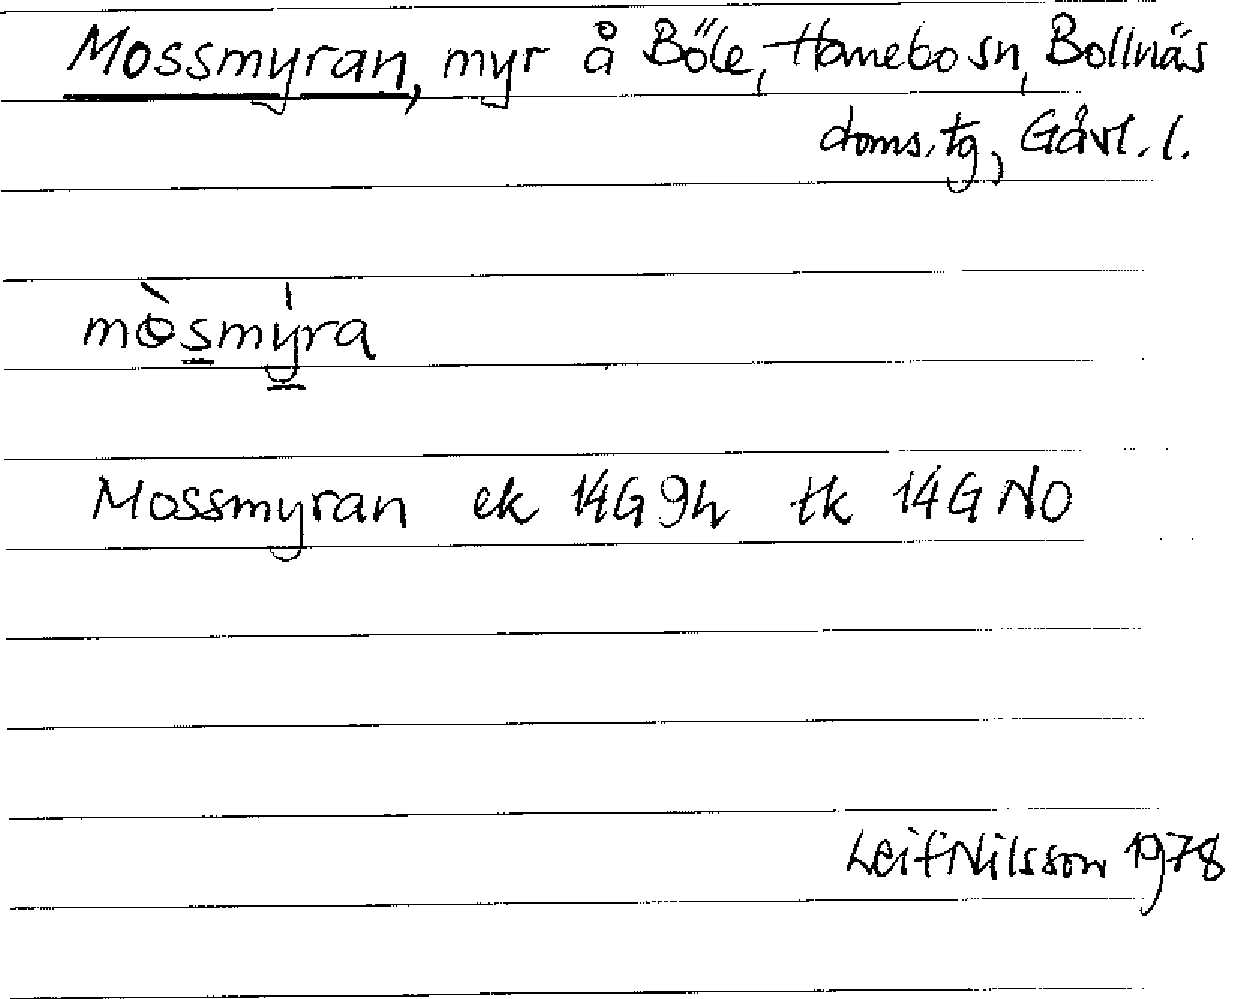 Mossmyran, myr å Böle, Hanebo sn, Bollnäs
doms.tg, Gävl. l.
mòsmýra
Mossmyran ek 14G 9h tk 14G NO
Leif Nilsson 1978